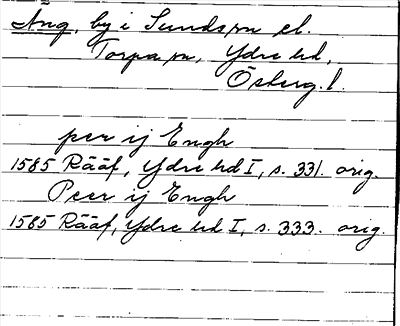 Äng, by i Sunds sn el.
Torpa sn, Ydre hd,
Österg. l.
per ij Engh
1585 Rääf, Ydre hd I, s. 331. orig.
Peer ij Engh
1585 Rääf, Ydre hd I, s. 333. orig.